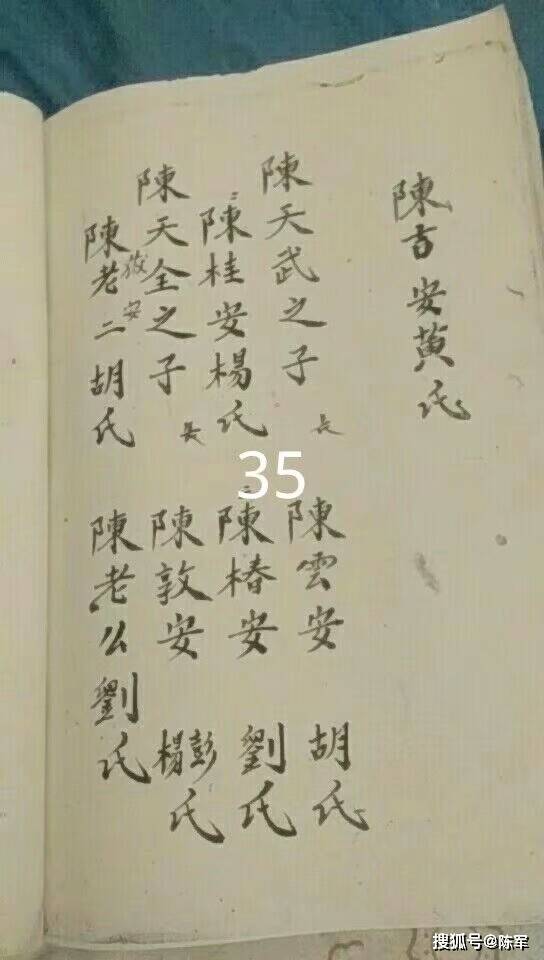 陳吉安黄氏
陳天武之子
長
陳雲安
胡氏
二
陳桂安楊氏
三
陳椿安
劉氏
陳天全之子
長
陳敦安
彭楊氏
陳老二胡氏
安
陳老么劉氏
35
搜狐号@陈军